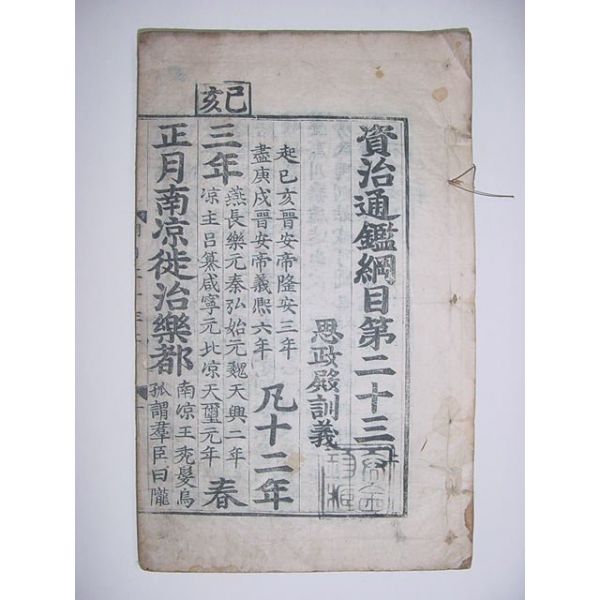 資治通鑑綱目第二十三
思政殿訓義
起己亥晉安帝隆安三年
盡庚戌晉安帝義熙六年
凡十二年
己亥
三年
燕長樂元秦弘始元魏天興二年
涼主呂纂咸寧元北涼天璽元年
春
正月南涼徙治樂都
南涼王禿髮烏
孤謂羣臣曰隴